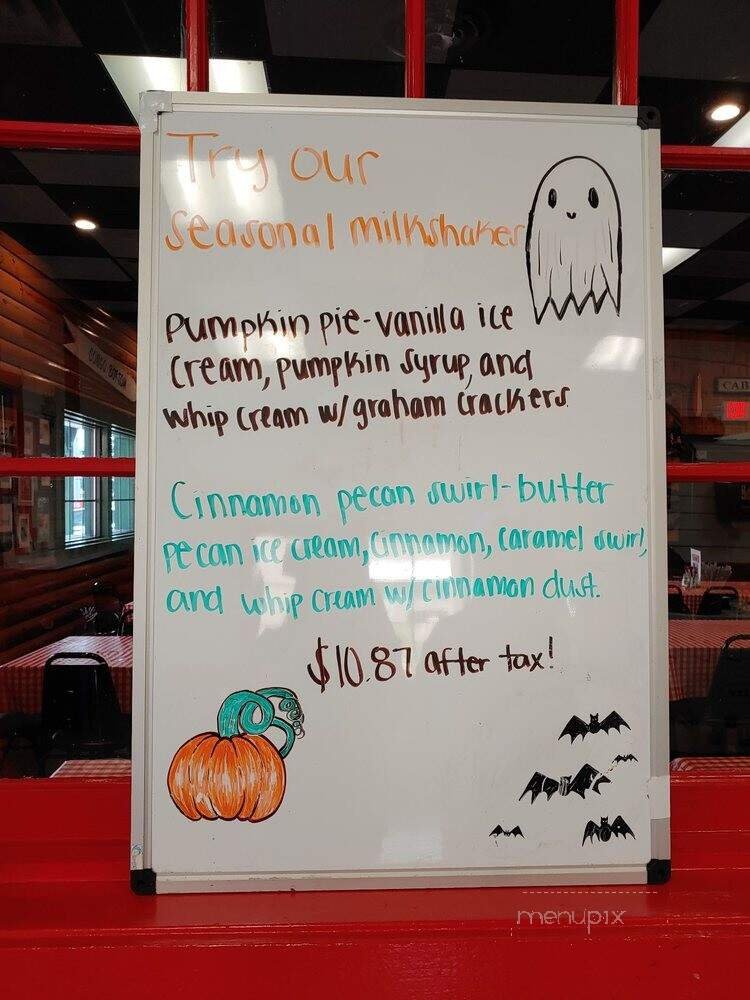 Try our
seasonal milkshakes
Pumpkin pie-vanilla ice
cream, pumpkin syrup, and
whip cream w/ graham crackers
Cinnamon pecan swirl-butter
pecan ice cream, cinnamon, caramel swirl,
and whip cream w/ cinnamon dust.
$10.87 after tax!
CAB
menupix